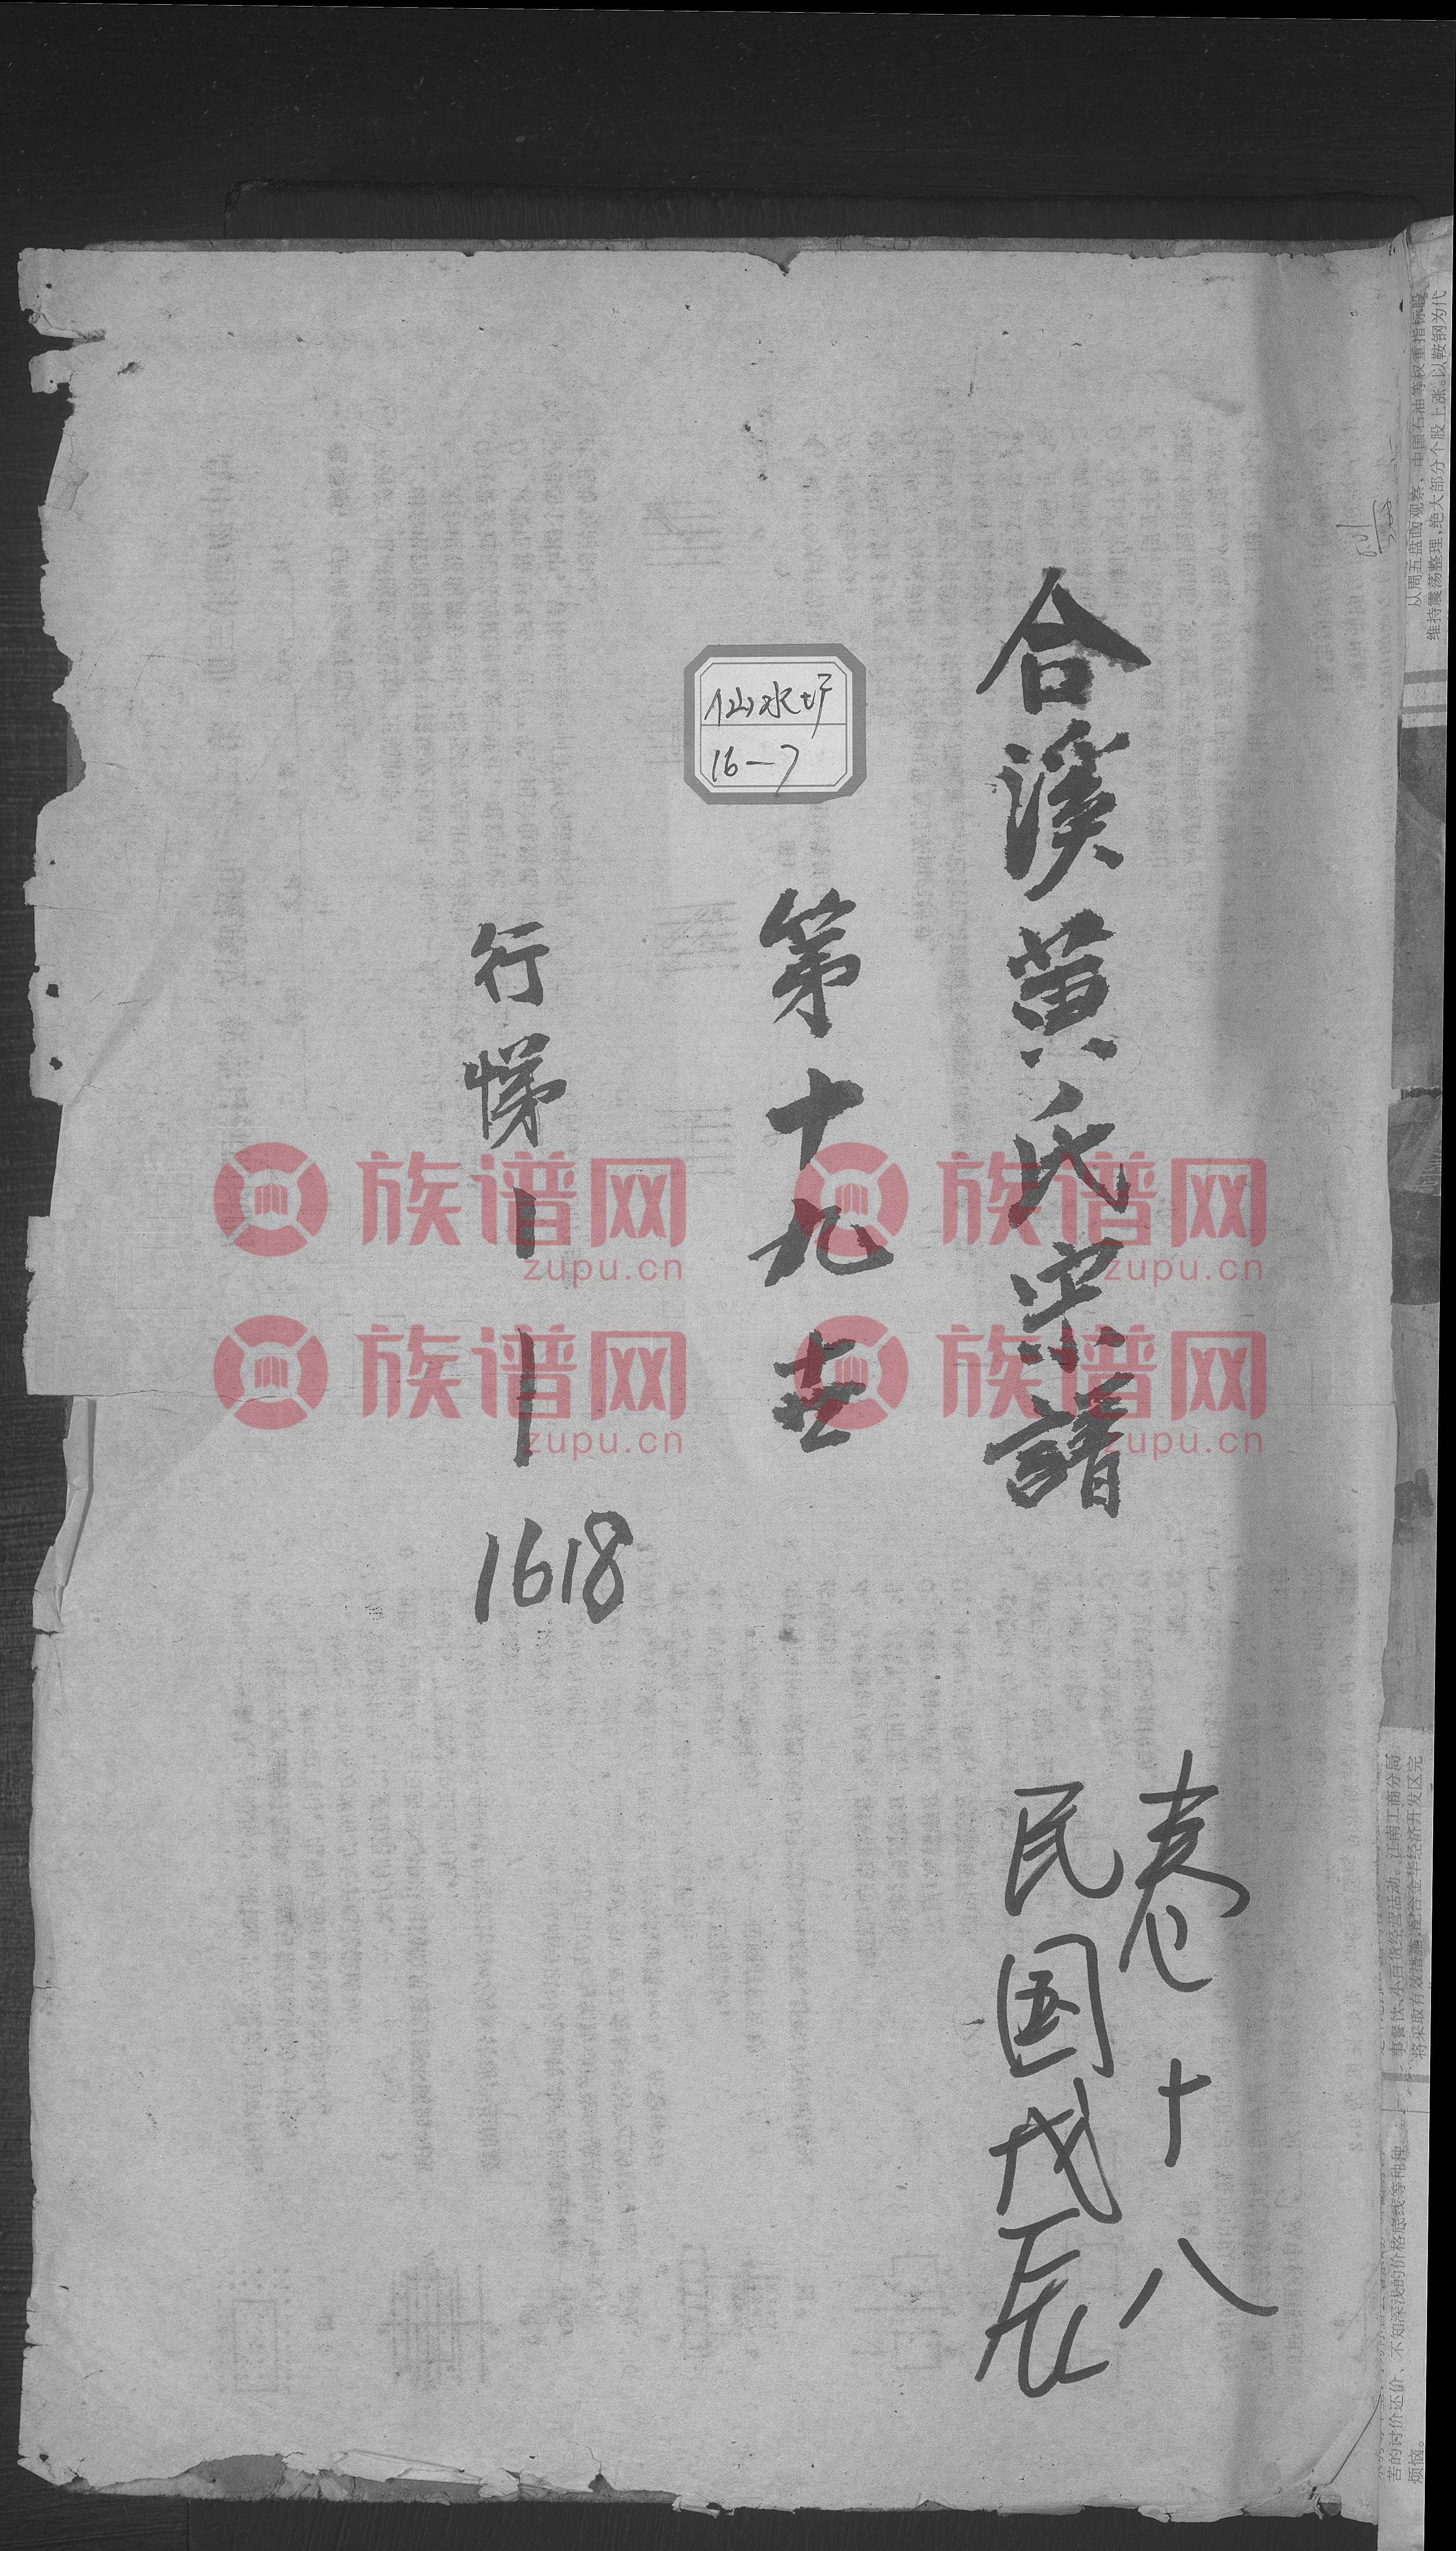 合溪黄氏宗譜
卷十八
民国戊辰
仙水圷
16—7
第十九世
行悌1—1618
族谱网
zupu.cn
族谱网
zupu.cn
族谱网
zupu.cn
族谱网
zupu.cn
从周五盘面观察，中国石油等权重指标股
维持震荡整理，绝大部分个股上涨。以鞍钢为代
事餐饮、小百货经营活动。江南工商分局
将采取有效措施，配合金华经济开发区完
苦的讨价还价、不知深浅的价格底线等种种
烦恼。